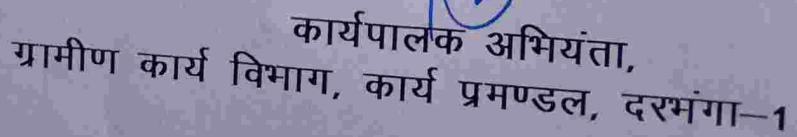 कार्यपालक अभियंता,
ग्रामीण कार्य विभाग, कार्य प्रमण्डल, दरभंगा—1